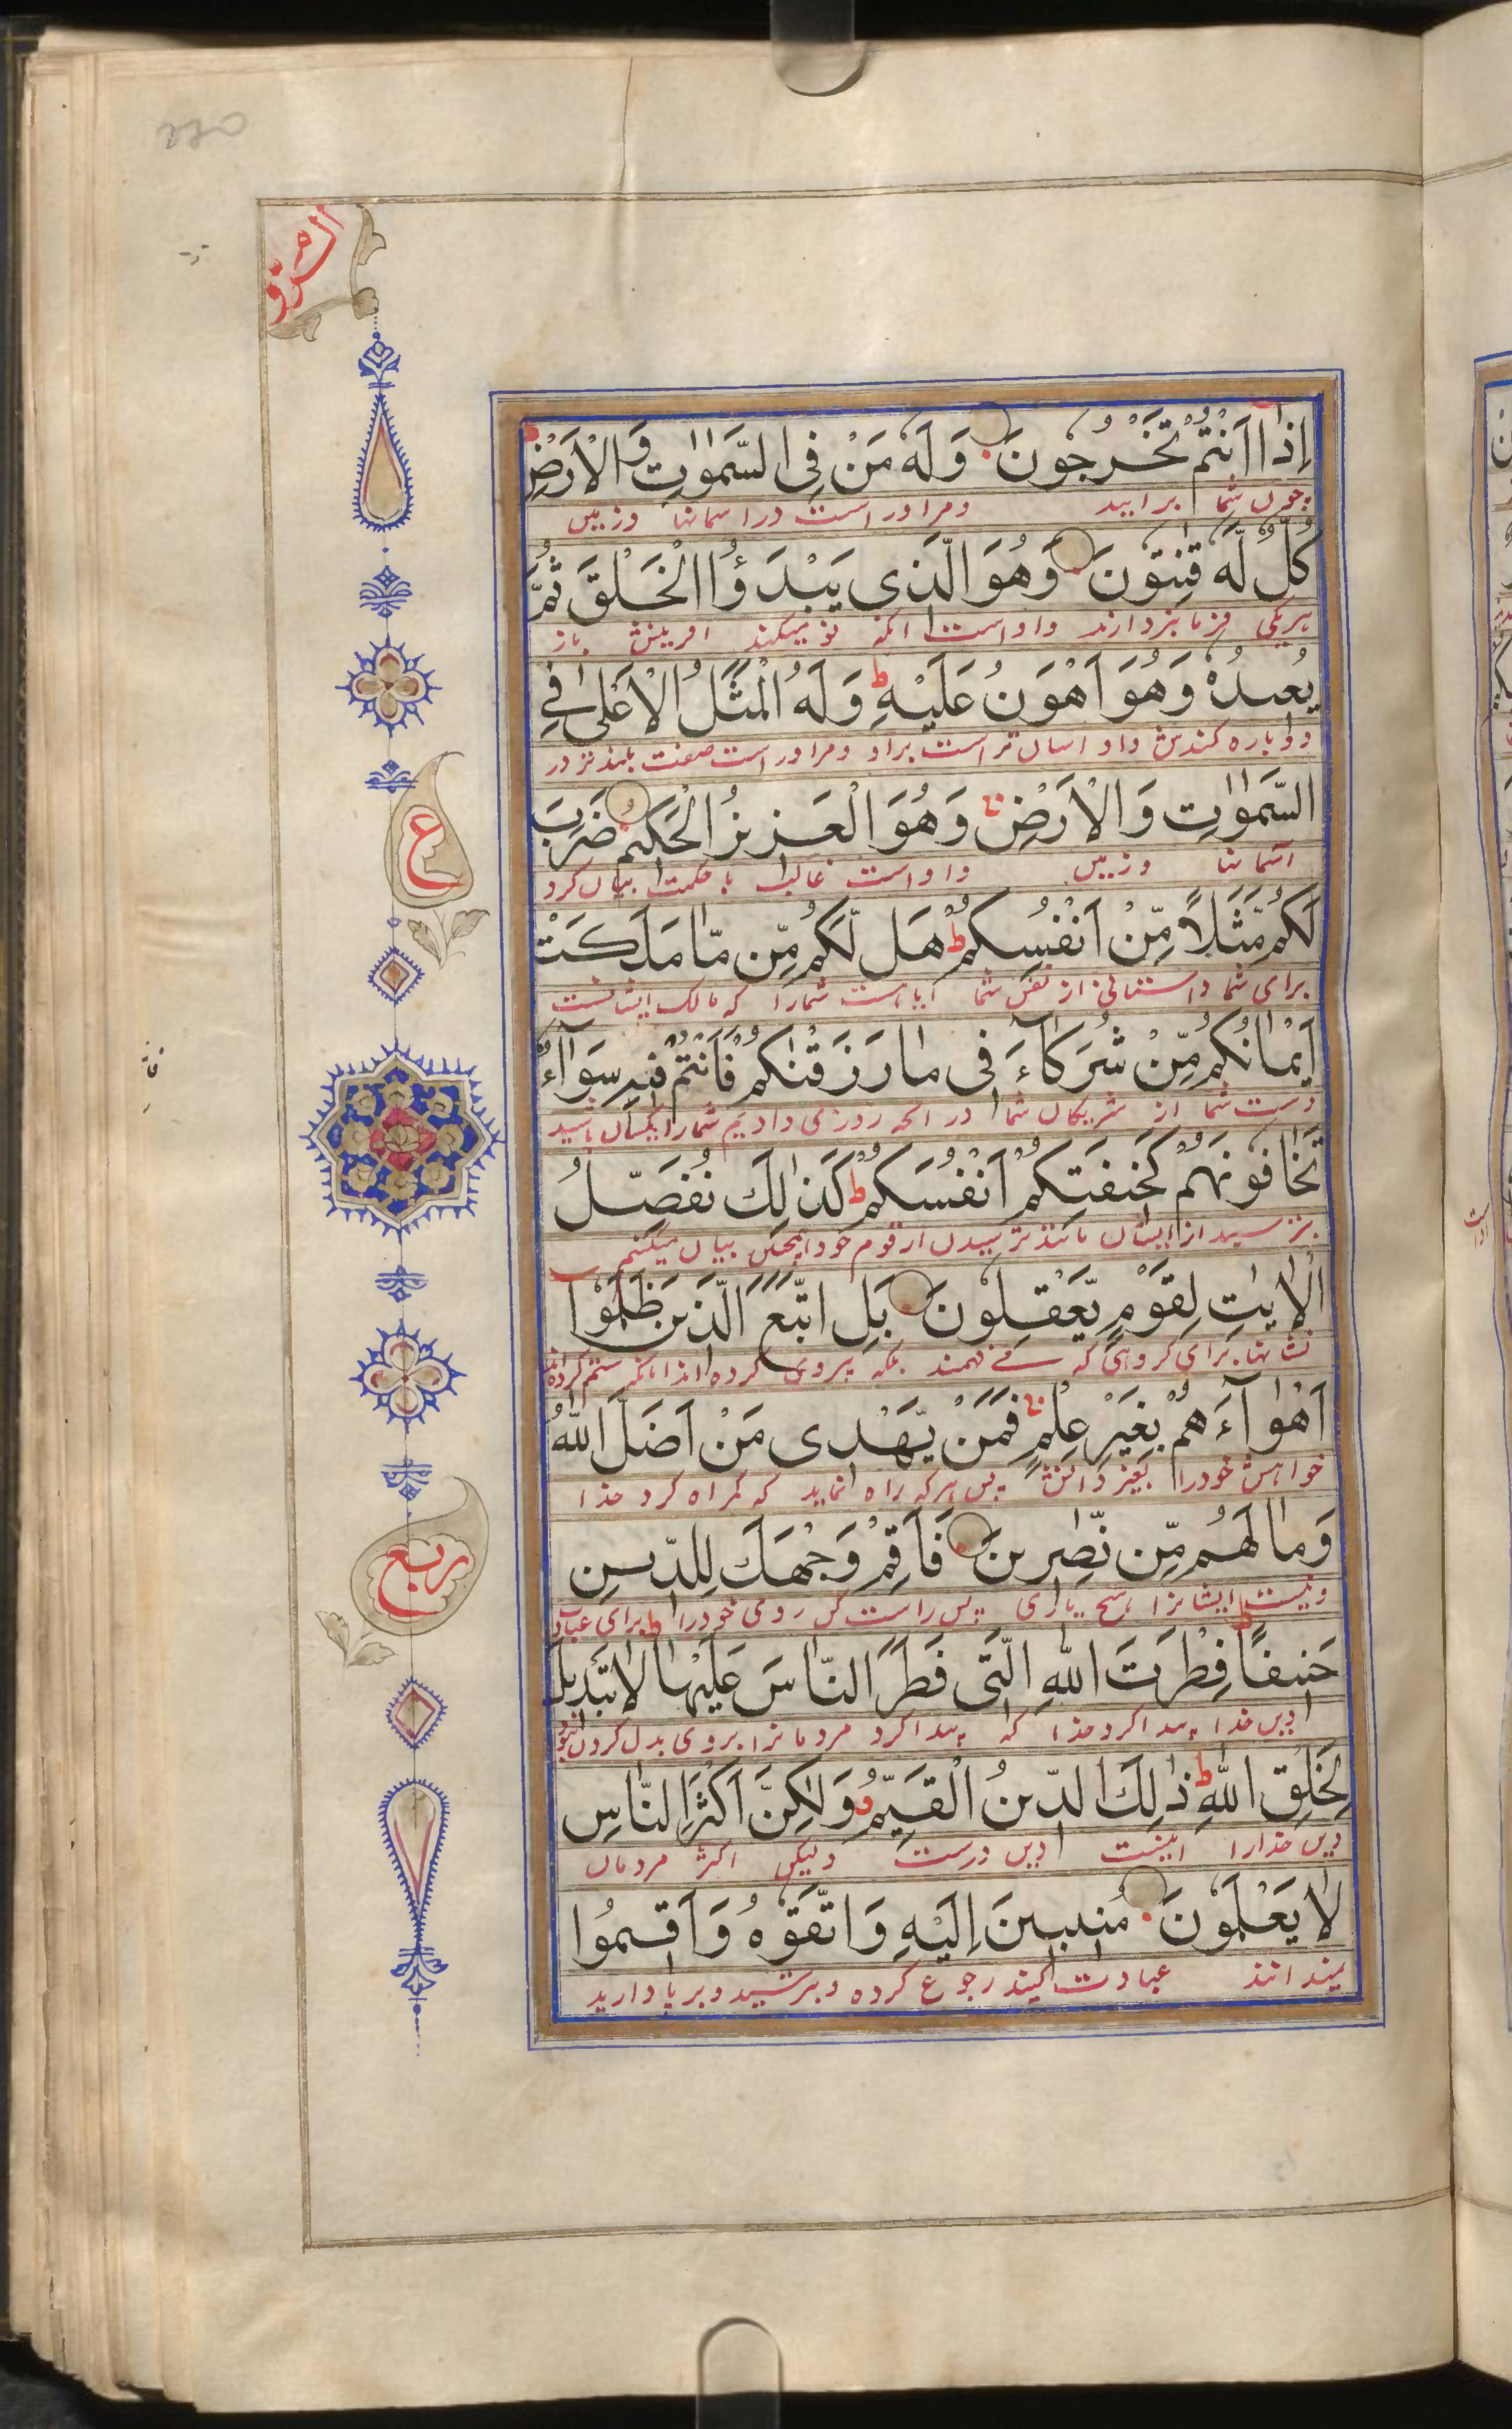 الم الروم
اِذَا اَنْتُمْ تَخْرُجُونَ وَلَهٗ مَنْ فِی السَّمٰوٰتِ وَالْاَرْضِ
چون شما برایید ومر اوراست در اسمانها وزمین
كُلٌّ لَّهٗ قٰنِتُوْنَ وَهُوَ الَّذِی یَبْدَؤُا الْخَلْقَ ثُمَّ
هریکی فرمانبردارند واواست انکه نو میکند افرینش باز
یُعِیدُهٗ وَهُوَ اَهْوَنُ عَلَیْهِ ط وَلَهُ الْمَثَلُ الْاَعْلٰی فِی
دوباره کندش واو اسان تراست براو ومر اوراست صفت بلندتر در
السَّمٰوٰتِ وَالْاَرْضِ ج وَهُوَ الْعَزِیزُ الْحَكِیمُ ضَرَبَ
اسمانها وزمین واواست غالب با حکمت بیان کرد
لَكُمْ مَّثَلًا مِّنْ اَنْفُسِكُمْ ط هَلْ لَّكُمْ مِّن مَّا مَلَكَتْ
برای شما داستانی از نفس شما ایا است شمارا که مالک ایشانست
اَیْمَانُكُمْ مِّنْ شُرَكَآءَ فِی مَا رَزَقْنٰكُمْ فَاَنْتُمْ فِیهِ سَوَآءٌ
دست شما از شریکان شما در انچه روزی دادیم شمارا یکسان باشید
تَخَافُونَهُمْ كَخِیفَتِكُمْ اَنْفُسَكُمْ ط كَذٰلِكَ نُفَصِّلُ
بترسید از ایشان مانند ترسیدن از قوم خود همچنین بیان میکنیم
الْاٰیٰتِ لِقَوْمٍ یَّعْقِلُونَ بَلِ اتَّبَعَ الَّذِینَ ظَلَمُوْا
نشانها برای گروهی که می فهمند بلکه پیروی کرده اند انانکه ستم کرده اند
اَهْوَآءَهُمْ بِغَیْرِ عِلْمٍ ج فَمَنْ یَّهْدِی مَنْ اَضَلَّ اللّٰهُ
خواهش خودرا بغیر دانش پس هرکه راه نماید که گمراه کرد خدا
وَمَا لَهُمْ مِّن نّٰصِرِینَ فَاَقِمْ وَجْهَكَ لِلدِّیْنِ
ونیست ایشانرا هیچ یاری پس راست کن روی خودرا برای عبادت
حَنِیفًا ط فِطْرَتَ اللّٰهِ الَّتِی فَطَرَ النَّاسَ عَلَیْهَا ط لَا تَبْدِیلَ
دین خدا پیدا کرد خدا که پیدا کرد مردمانرا بروی بدل کردن نبود
لِخَلْقِ اللّٰهِ ط ذٰلِكَ الدِّینُ الْقَیِّمُ وَلٰكِنَّ اَكْثَرَ النَّاسِ
دین خدارا اینست دین درست ولیکن اکثر مردمان
لَا یَعْلَمُونَ مُنِیبِینَ اِلَیْهِ وَاتَّقُوْهُ وَاَقِیمُوا
نمیدانند عبادت کنید رجوع کرده وبترسید وبرپا دارید
ع
ربع